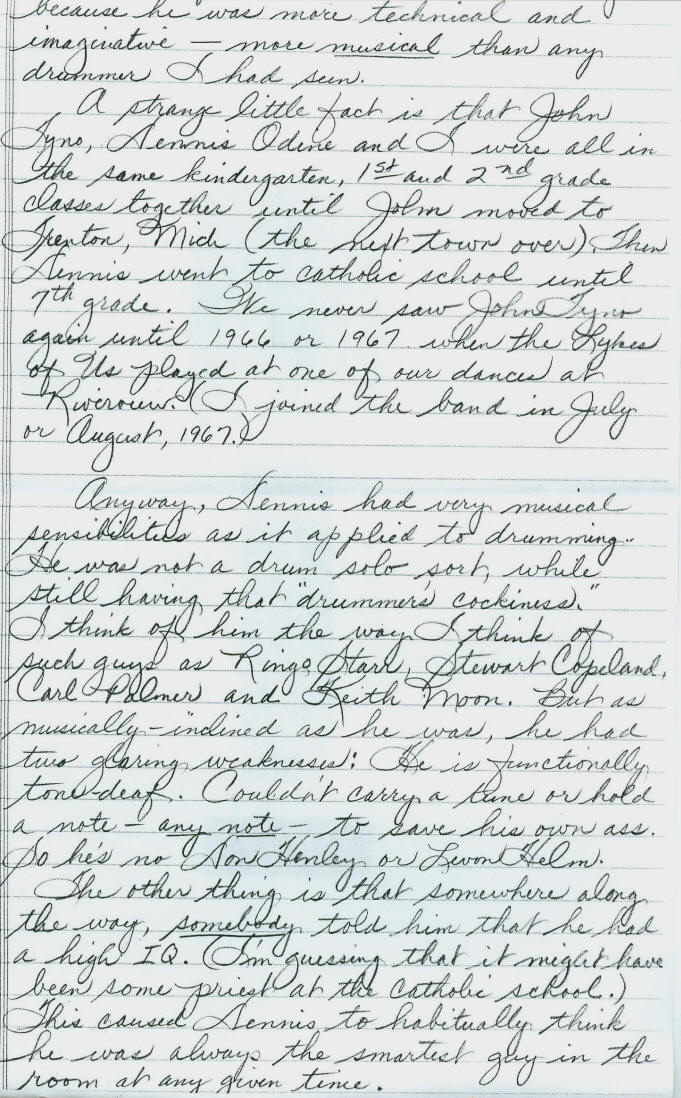 because he was more technical and
imaginative — more musical than any
drummer I had seen.
A strange little fact is that John
Tyno, Dennis Odine and I were all in
the same kindergarten, 1st and 2nd grade
classes together until John moved to
Trenton, Mich (the next town over). Then
Dennis went to catholic school until
7th grade. We never saw John Tyno
again until 1966 or 1967 when the Lykes
of Us played at one of our dances at
Riverview. (I joined the band in July
or August, 1967.)
Anyway, Dennis had very musical
sensibilities as it applied to drumming.
He was not a drum solo sort, while
still having that "drummer's cockiness."
I think of him the way I think of
such guys as Ringo Starr, Stewart Copeland,
Carl Palmer and Keith Moon. But as
musically-inclined as he was, he had
two glaring weaknesses: He is functionally
tone-deaf. Couldn't carry a tune or hold
a note - any note - to save his own ass.
So he's no Don Henley or Levon Helm.
The other thing is that somewhere along
the way, somebody told him that he had
a high IQ. (I'm guessing that it might have
been some priest at the catholic school.)
This caused Dennis to habitually think
he was always the smartest guy in the
room at any given time.